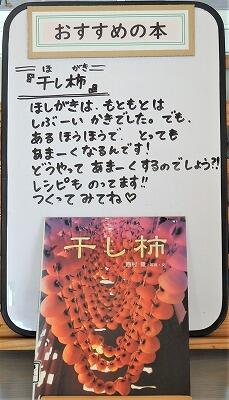 おすすめの本
ほ がき
『干し柿』
ほしがきは、もともとは
しぶーい かきでした。でも、
ある ほうほうで、とっても
あまーく なるんです!
どうやって あまーく するのでしょう?!
レシピも のってます!!
つくって みてね♡
干し柿
西村 豊